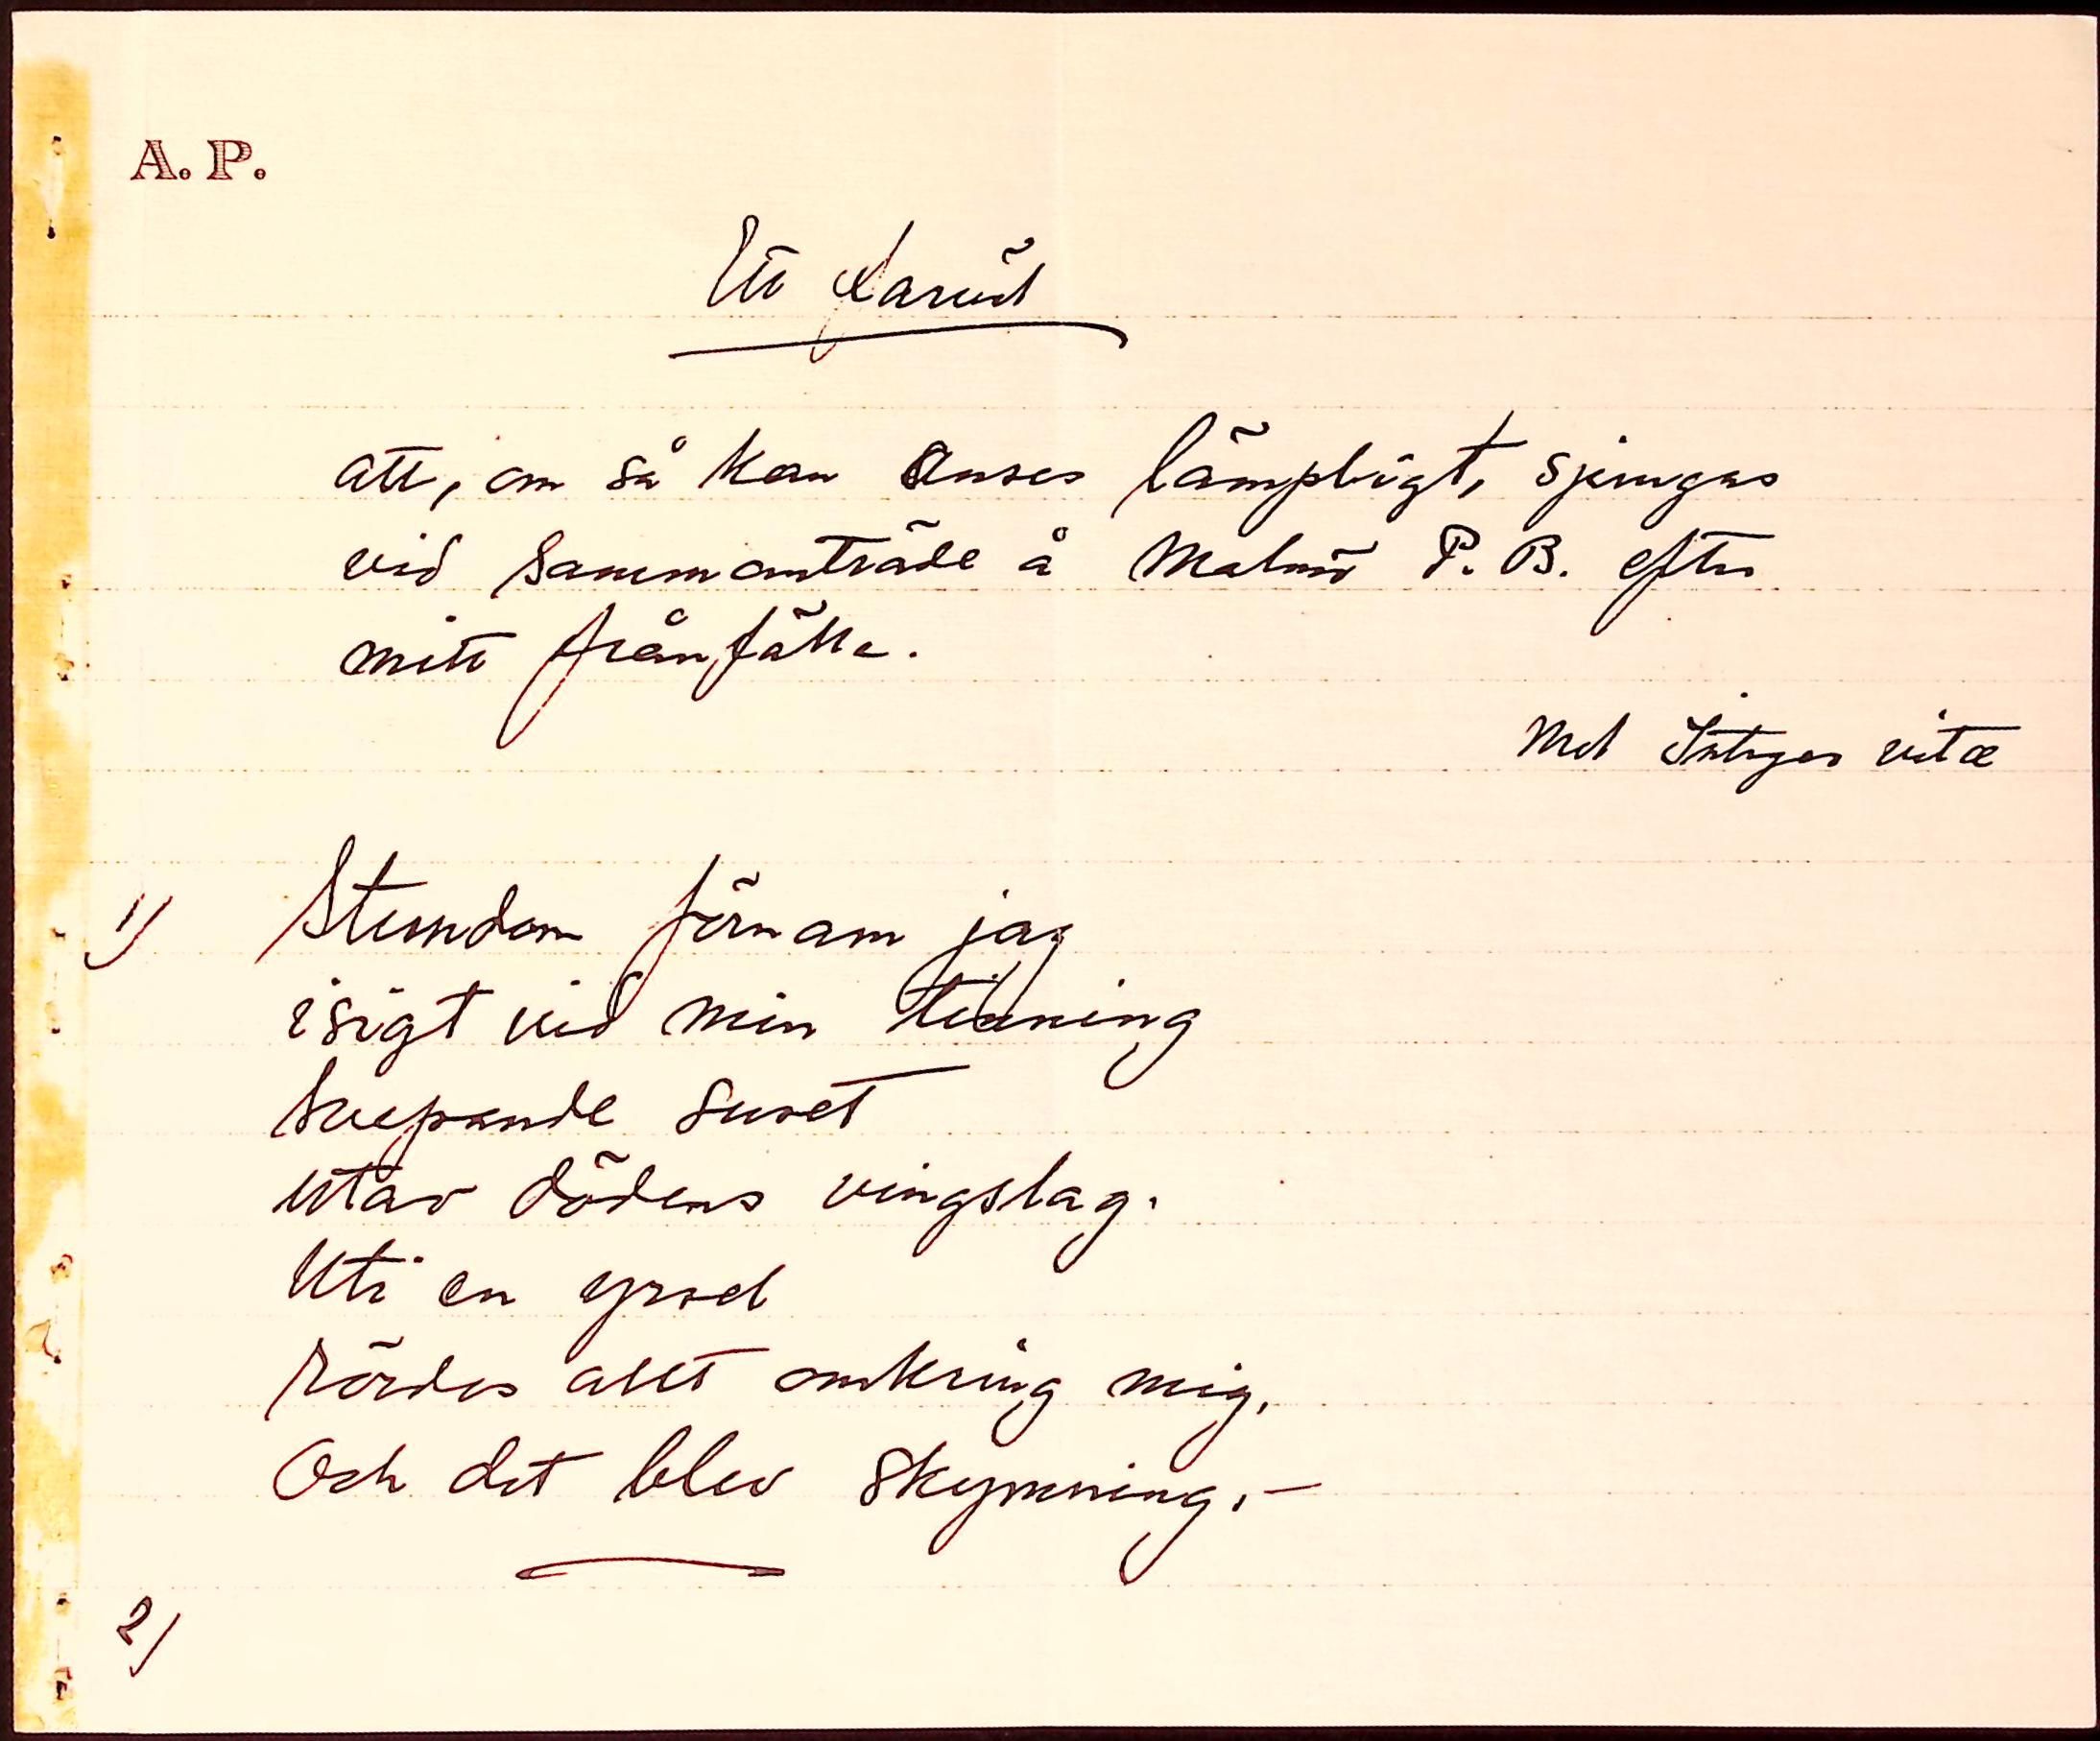 A. P.
Ett farväl
att, om så kan anses lämpligt, sjungas
vid sammanträde å Malmö P. B. efter
mitt frånfälle.
Mel Integer vitæ
1) Stundom förnam jag
isigt vid min tinning
svepande suset
utav dödens vingslag.
Uti en yrsel
rördes allt omkring mig,
Och det blev skymning.—
2)